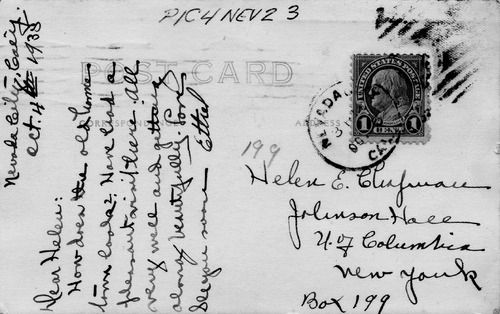 PIC4NEV2 3
POST CARD
CORRESPONDENCE
ADDRESS
Nevada City, Calif.
Oct. 4 1933
Dear Helen:
How does the old home
town look? Have had a
pleasant visit here. All
very well and getting
along beautifully.
See you soon
Ethel
UNITED STATES POSTAGE
1 CENT 1
NEVADA
CAL
199
Helen E. Chapman
Johnson Hall
U. of Columbia
New York
Box 199